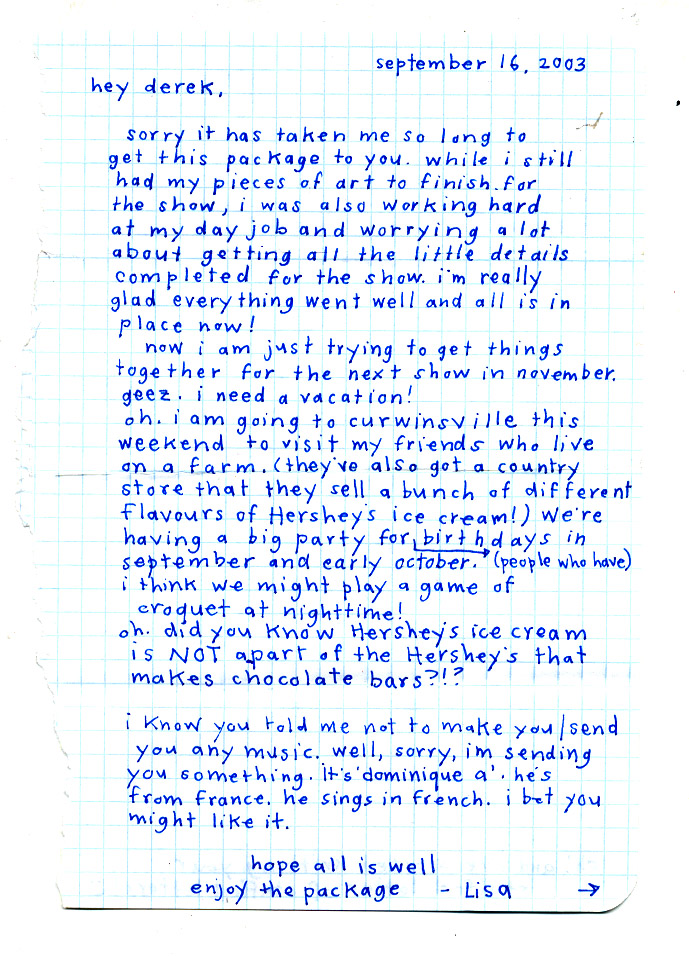 september 16, 2003
hey derek,
sorry it has taken me so long to
get this package to you. while i still
had my pieces of art to finish for
the show, i was also working hard
at my day job and worrying a lot
about getting all the little details
completed for the show. i'm really
glad everything went well and all is in
place now!
now i am just trying to get things
together for the next show in november.
geez. i need a vacation!
oh. i am going to curwinsville this
weekend to visit my friends who live
on a farm. (they've also got a country
store that they sell a bunch of different
flavours of Hershey's ice cream!) we're
having a big party for birthdays in
september and early october. (people who have)
i think we might play a game of
croquet at nighttime!
oh. did you know Hershey's ice cream
is NOT apart of the Hershey's that
makes chocolate bars?!?
i know you told me not to make you/send
you any music. well, sorry, i'm sending
you something. it's 'dominique a'. he's
from france. he sings in french. i bet you
might like it.
hope all is well
enjoy the package - Lisa →